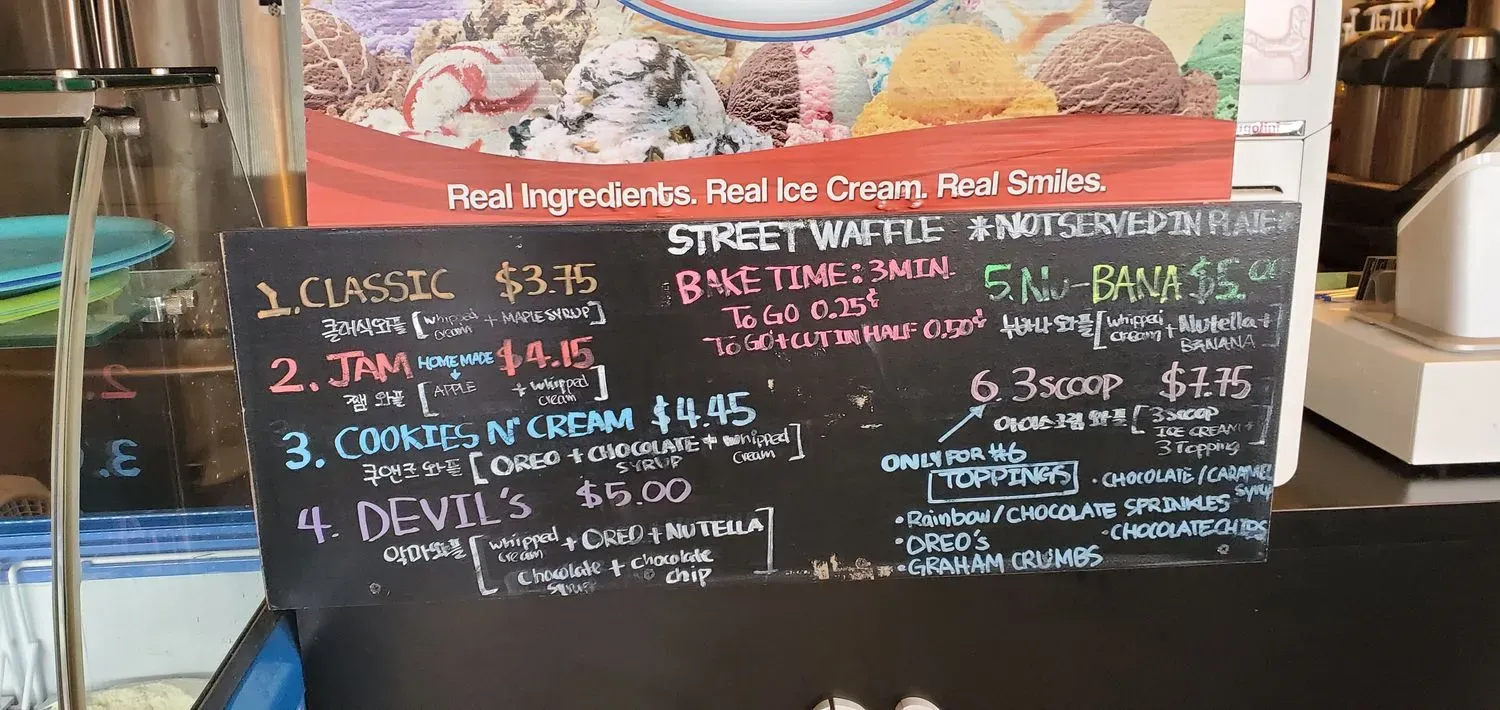 Real Ingredients. Real Ice Cream. Real Smiles.
STREET WAFFLE *NOT SERVED IN PLATE*
BAKE TIME: 3MIN.
TO GO 0.25¢
TO GO + CUT IN HALF 0.50¢
1. CLASSIC $3.75
클래식 와플 [whipped cream + MAPLE SYRUP]
2. JAM HOMEMADE $4.15
쨈 와플 [APPLE + whipped cream]
3. COOKIES N' CREAM $4.45
쿠앤크 와플 [OREO + CHOCOLATE SYRUP + whipped cream]
4. DEVIL's $5.00
악마와플 [whipped cream + OREO + NUTELLA
Chocolate syrup + chocolate chip]
5. NU-BANA $5.00
누바나 와플 [whipped cream + Nutella + BANANA]
6. 3 SCOOP $7.75
아이스크림 와플 [3 SCOOP
ICE CREAM +
3 Topping]
ONLY FOR #6
TOPPINGS
• CHOCOLATE/CARAMEL syrup
• Rainbow/CHOCOLATE SPRINKLES
• OREO's
• CHOCOLATE CHIPS
• GRAHAM CRUMBS